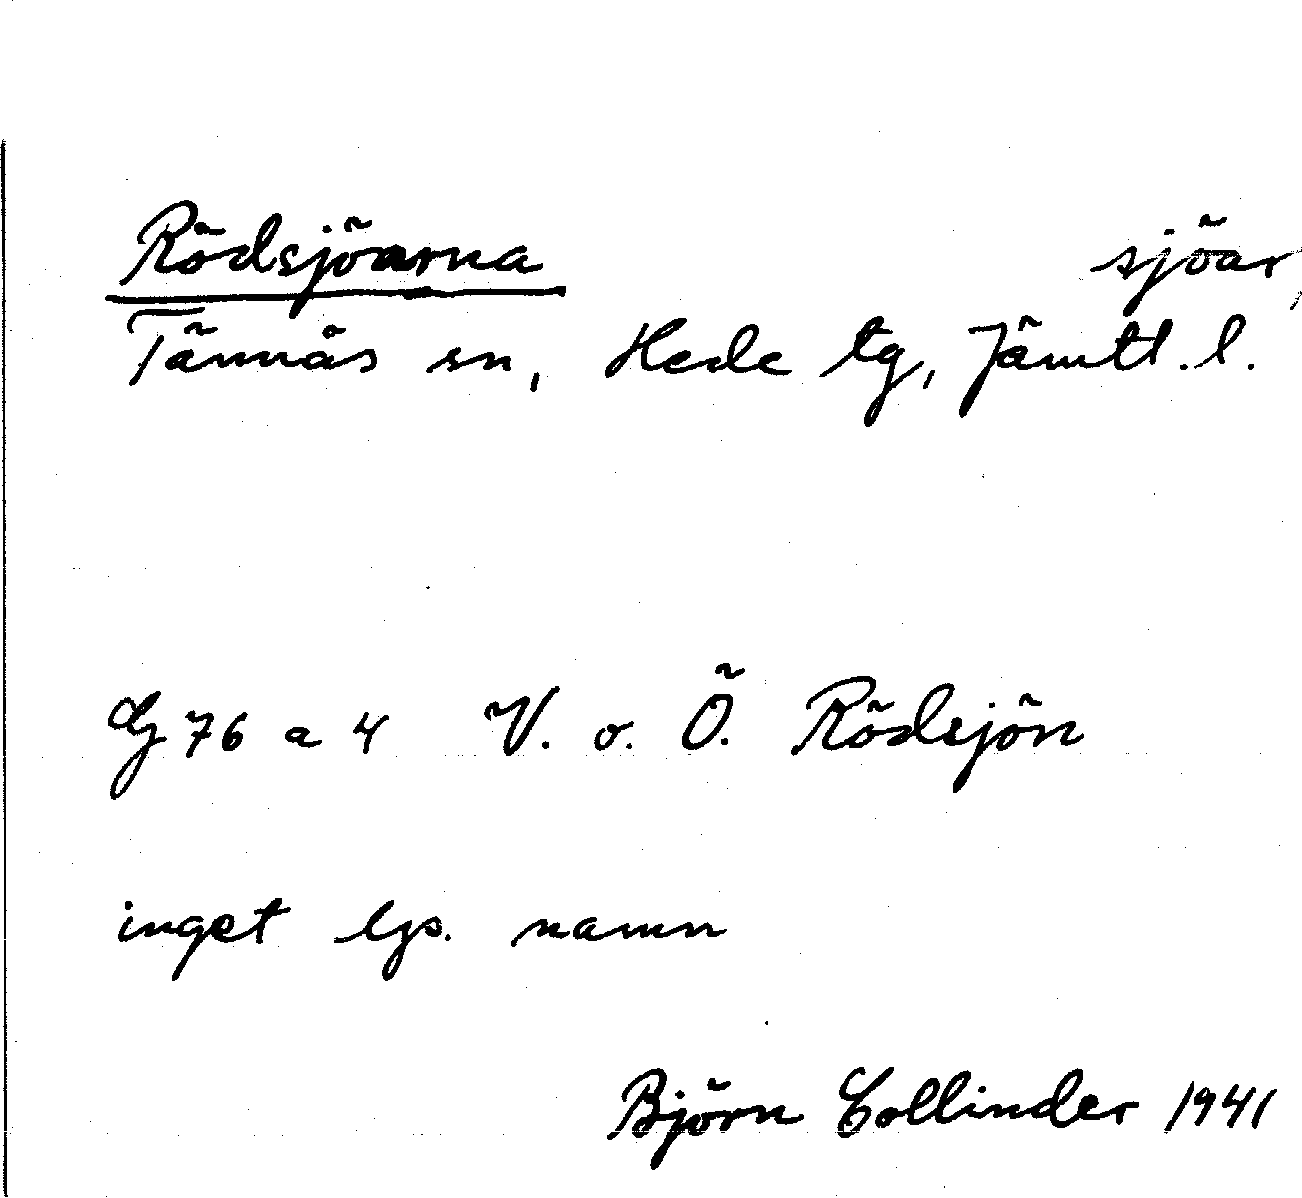 Rödsjöarna sjöar,
Tännäs sn, Hede tg, Jämtl. l.
G 76 a 4 V. o. Ö. Rödsjön
inget lps. namn
Björn Collinder 1941